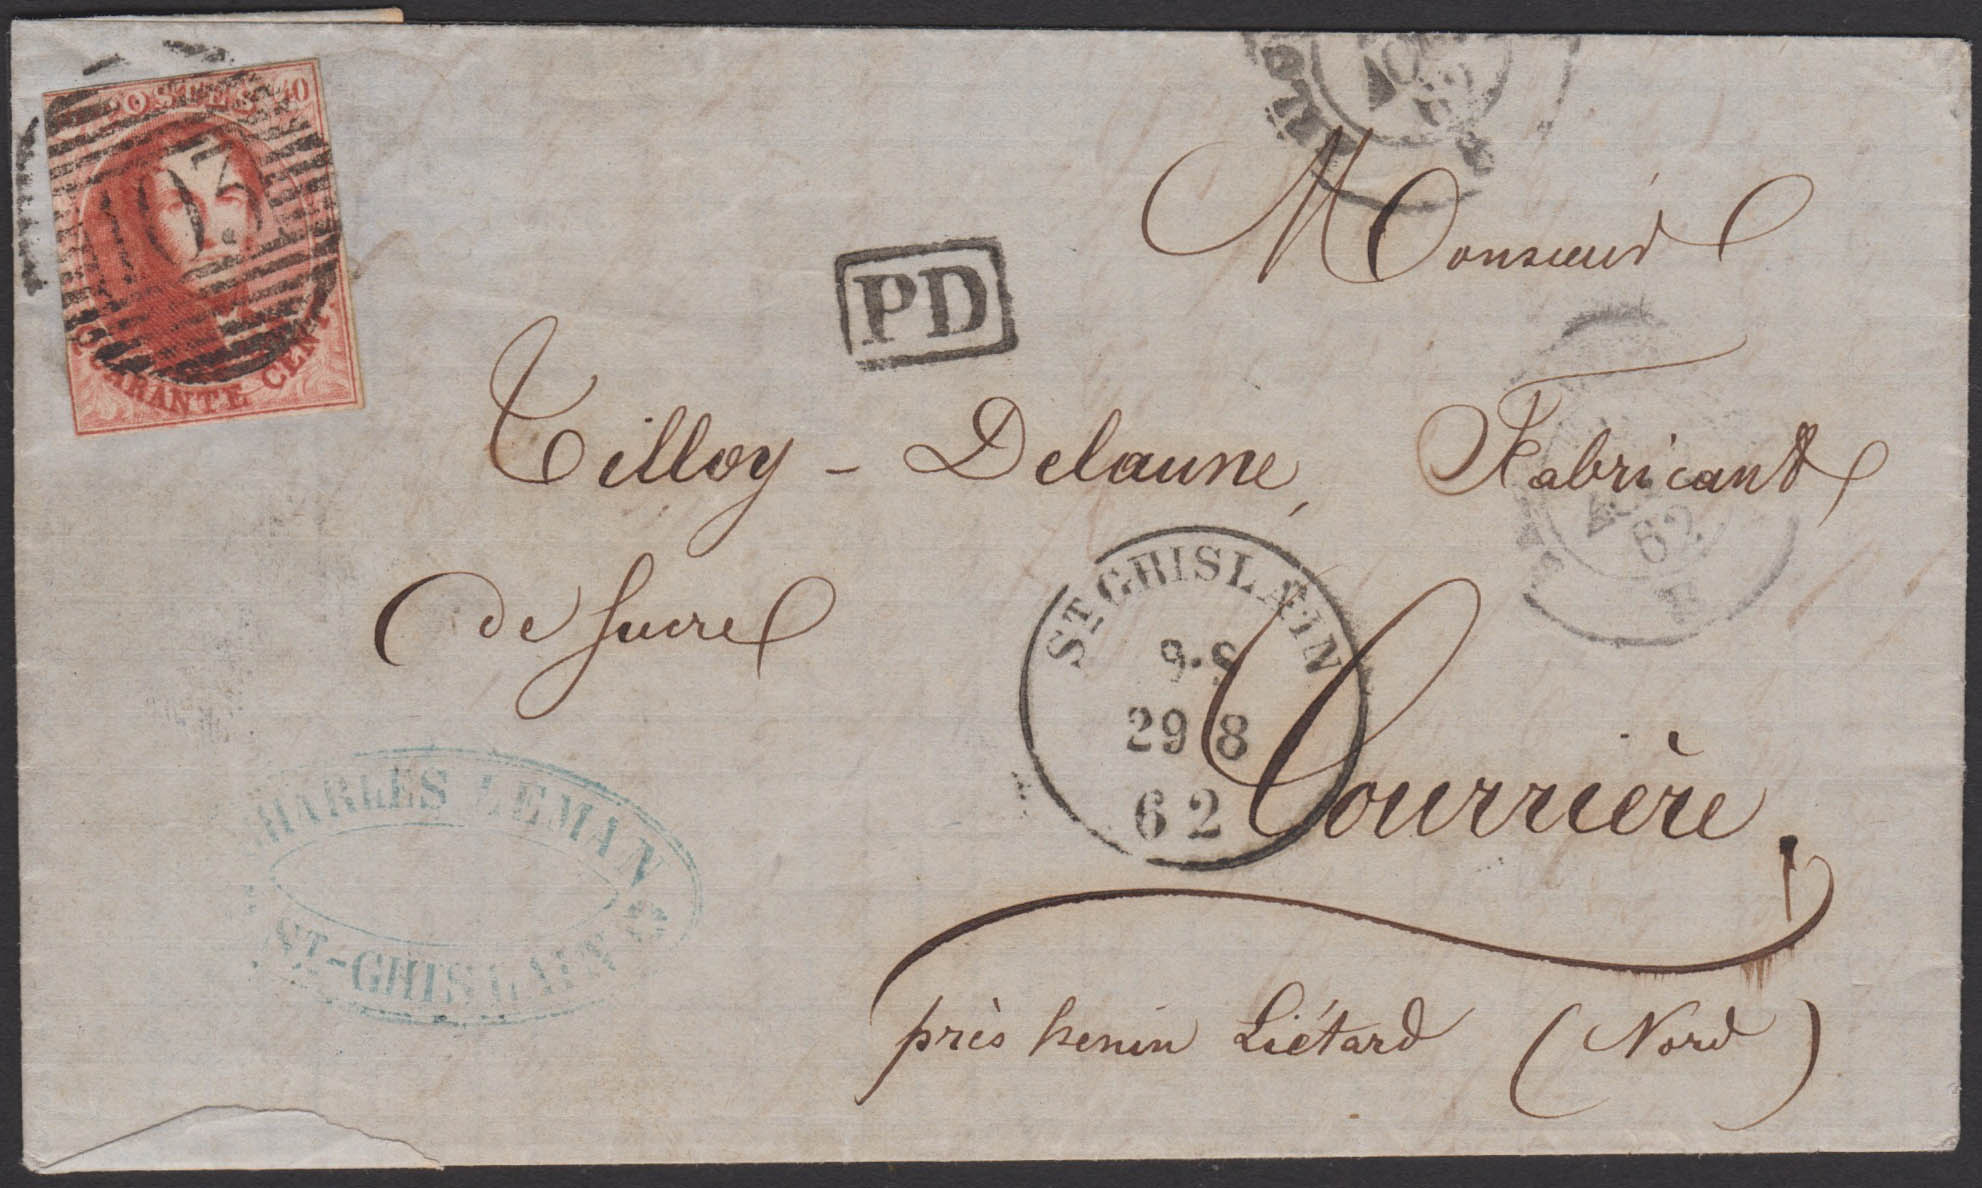 POSTES 40
103
QUARANTE CENT
PD
AOUT
62
Monsieur
Tilloy - Delaune, Fabricant
de Sucre
62
ST GHISLAIN
29 8
62
Courrière,
CHARLES LEMAN
ST-GHISLAIN
près henin Liétard (Nord)